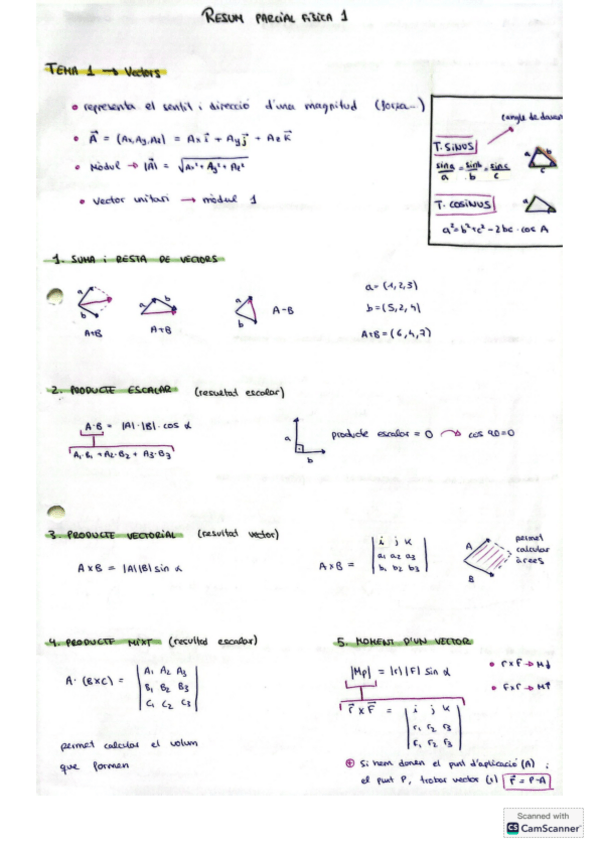 RESUM PARCIAL FISICA 1
TEMA 1 → Vectors
• representa el sentit i direcció d'una magnitud (força...)
• A⃗ = (Ax, Ay, Az) = Ax i⃗ + Ay j⃗ + Az k⃗
• Mòdul → |A⃗| = √Ax² + Ay² + Az²
• Vector unitari → mòdul 1
(angle de
T. SINUS
sin a/a = sin b/b = sin c/c
a b c
T. COSINUS
a
a² = b² + c² - 2bc · cos A
1. SUMA i RESTA DE VECTORS
a b A+B
a b A+B
a b A-B
a = (1, 2, 3)
b = (5, 2, 4)
A+B = (6, 4, 7)
2. PRODUCTE ESCALAR (resultad escalar)
A·B = |A|·|B|·cos α
A₁·B₁ + A₂·B₂ + A₃·B₃
a b
producte escalar = 0 → cos 90=0
3. PRODUCTE VECTORIAL (resultad vector)
A x B = |A||B| sin α
A x B = | i j k |
| a₁ a₂ a₃ |
| b₁ b₂ b₃ |
A B
permet
calcular
àrees
4. PRODUCTE MIXT (resultad escalar)
A · (B x C) = | A₁ A₂ A₃ |
| B₁ B₂ B₃ |
| C₁ C₂ C₃ |
permet calcular el volum
que formen
5. MOMENT D'UN VECTOR
|Mp| = |r||F| sin α
• r x F → M↓
• F x r → M↑
r⃗ x F⃗ = | i j k |
| r₁ r₂ r₃ |
| F₁ F₂ F₃ |
⊕ Si hem donen el punt d'aplicació (A) i
el punt P, trobar vector (r) r⃗ = P-A
Scanned with
CS CamScanner